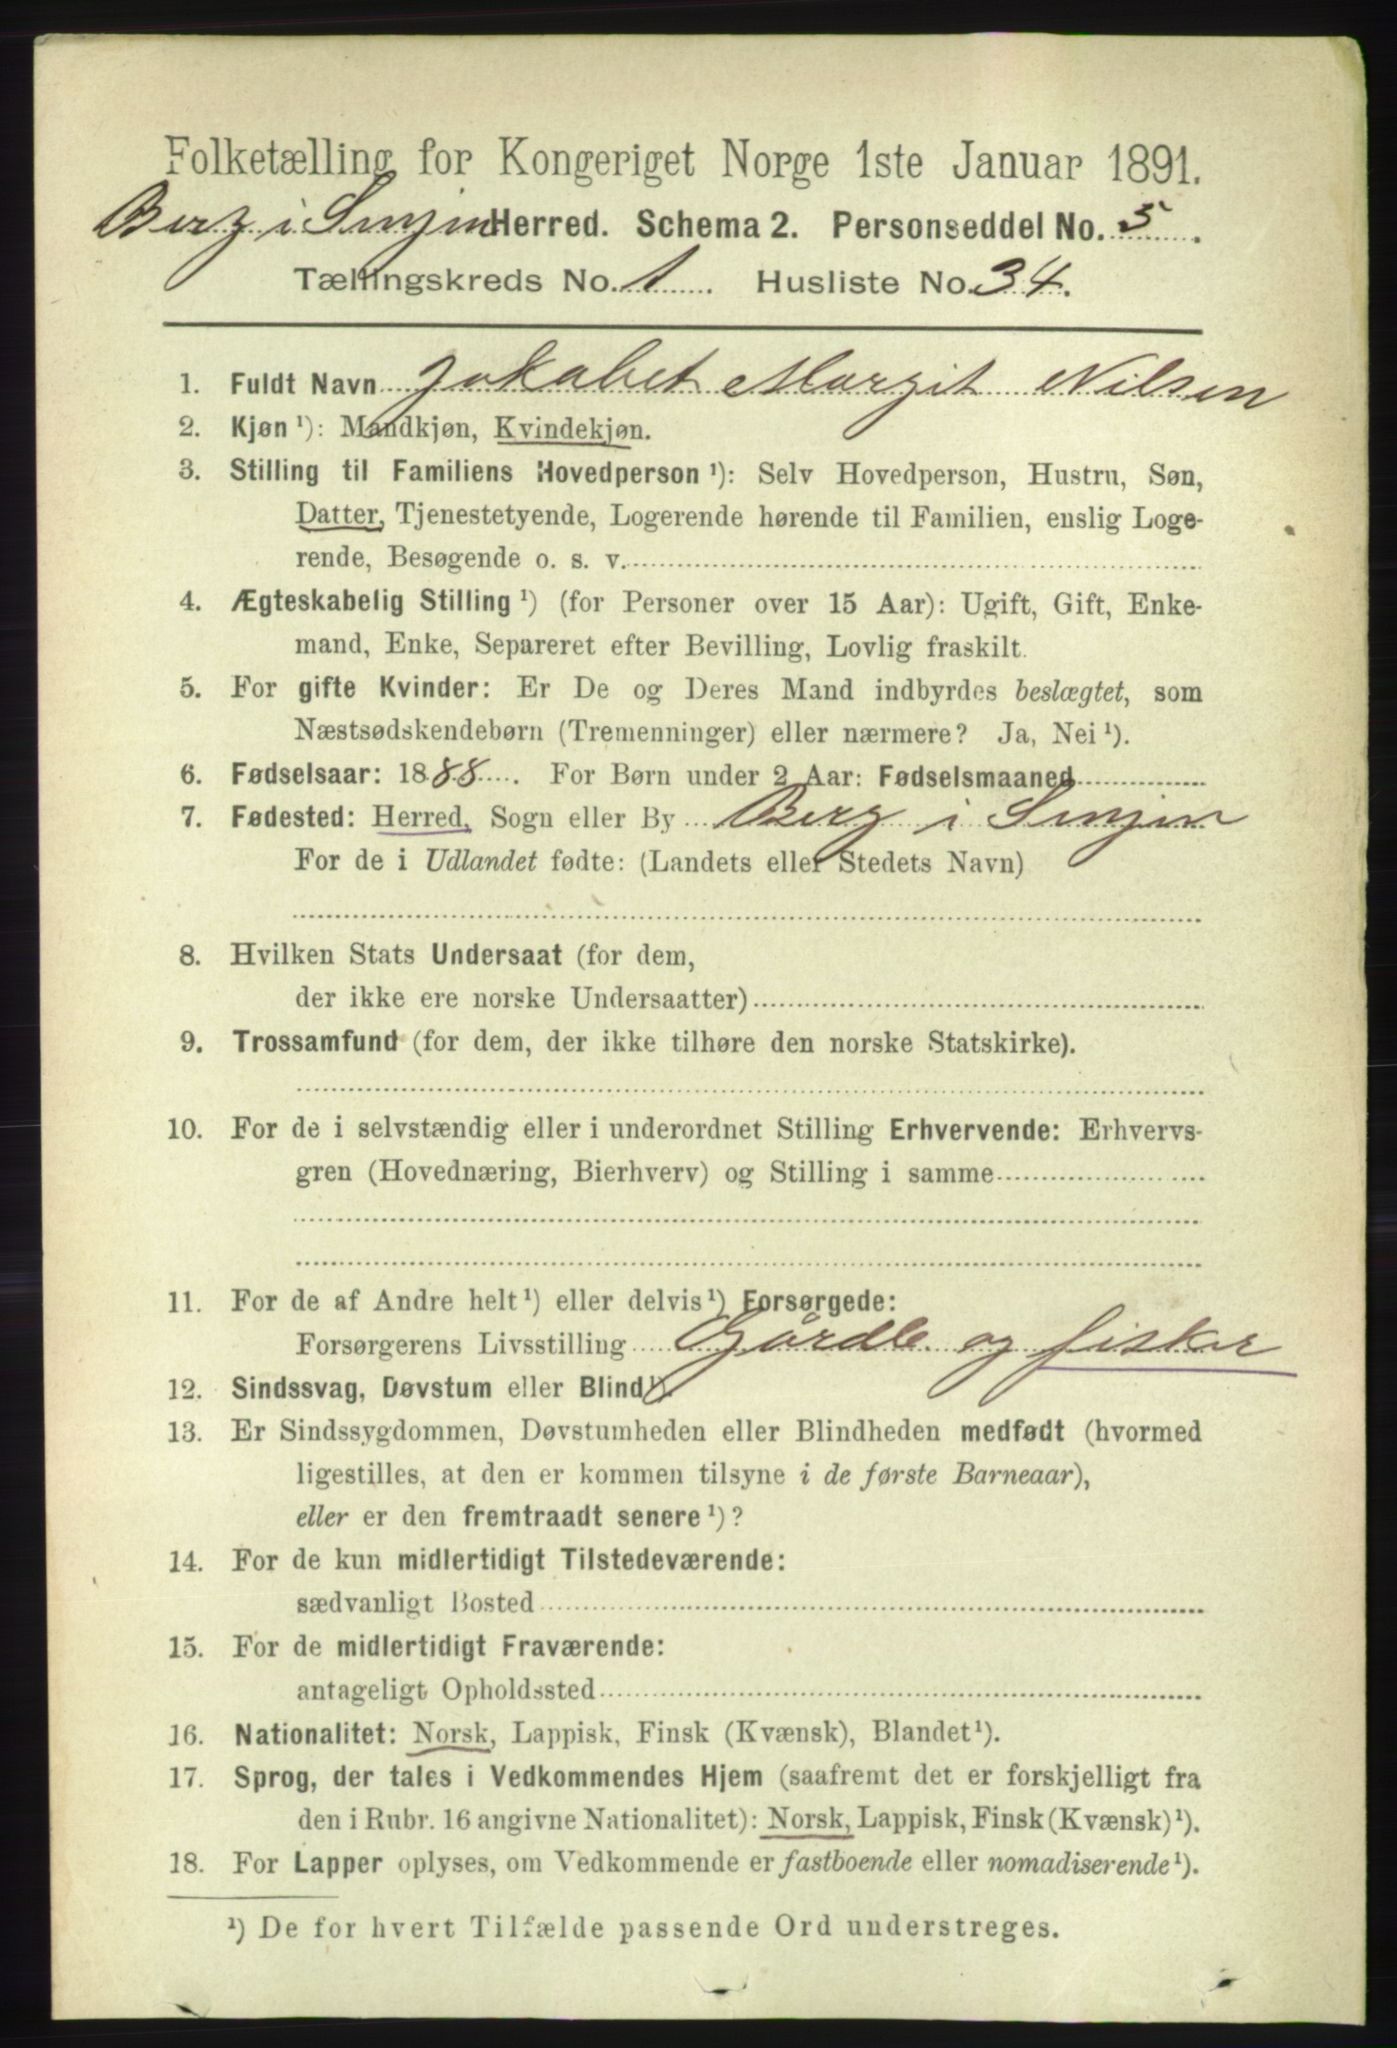 Folketælling for Kongeriget Norge 1ste Januar 1891.
Berg i Senjen Herred. Schema 2. Personseddel No. 5.
Tællingskreds No. 1. Husliste No. 34.
1. Fuldt Navn Jokabet Margit Nilsen
2. Kjøn ¹): Mandkjøn, Kvindekjøn.
3. Stilling til Familiens Hovedperson ¹): Selv Hovedperson, Hustru, Søn,
Datter, Tjenestetyende, Logerende hørende til Familien, enslig Loge-
rende, Besøgende o. s. v.
4. Ægteskabelig Stilling ¹) (for Personer over 15 Aar): Ugift, Gift, Enke-
mand, Enke, Separeret efter Bevilling, Lovlig fraskilt.
5. For gifte Kvinder: Er De og Deres Mand indbyrdes beslægtet, som
Næstsødskendebørn (Tremenninger) eller nærmere? Ja, Nei ¹).
6. Fødselsaar: 1888. For Børn under 2 Aar: Fødselsmaaned
7. Fødested: Herred, Sogn eller By Berg i Senjen
For de i Udlandet fødte: (Landets eller Stedets Navn)
8. Hvilken Stats Undersaat (for dem,
der ikke ere norske Undersaatter)
9. Trossamfund (for dem, der ikke tilhøre den norske Statskirke).
10. For de i selvstændig eller i underordnet Stilling Erhvervende: Erhvervs-
gren (Hovednæring, Bierhverv) og Stilling i samme
11. For de af Andre helt ¹) eller delvis ¹) Forsørgede:
Forsørgerens Livsstilling Gårdb. og fisker
12. Sindssvag, Døvstum eller Blind ¹).
13. Er Sindssygdommen, Døvstumheden eller Blindheden medfødt (hvormed
ligestilles, at den er kommen tilsyne i de første Barneaar),
eller er den fremtraadt senere ¹)?
14. For de kun midlertidigt Tilstedeværende:
sædvanligt Bosted
15. For de midlertidigt Fraværende:
antageligt Opholdssted
16. Nationalitet: Norsk, Lappisk, Finsk (Kvænsk), Blandet ¹).
17. Sprog, der tales i Vedkommendes Hjem (saafremt det er forskjelligt fra
den i Rubr. 16 angivne Nationalitet): Norsk, Lappisk, Finsk (Kvænsk) ¹).
18. For Lapper oplyses, om Vedkommende er fastboende eller nomadiserende ¹).
¹) De for hvert Tilfælde passende Ord understreges.